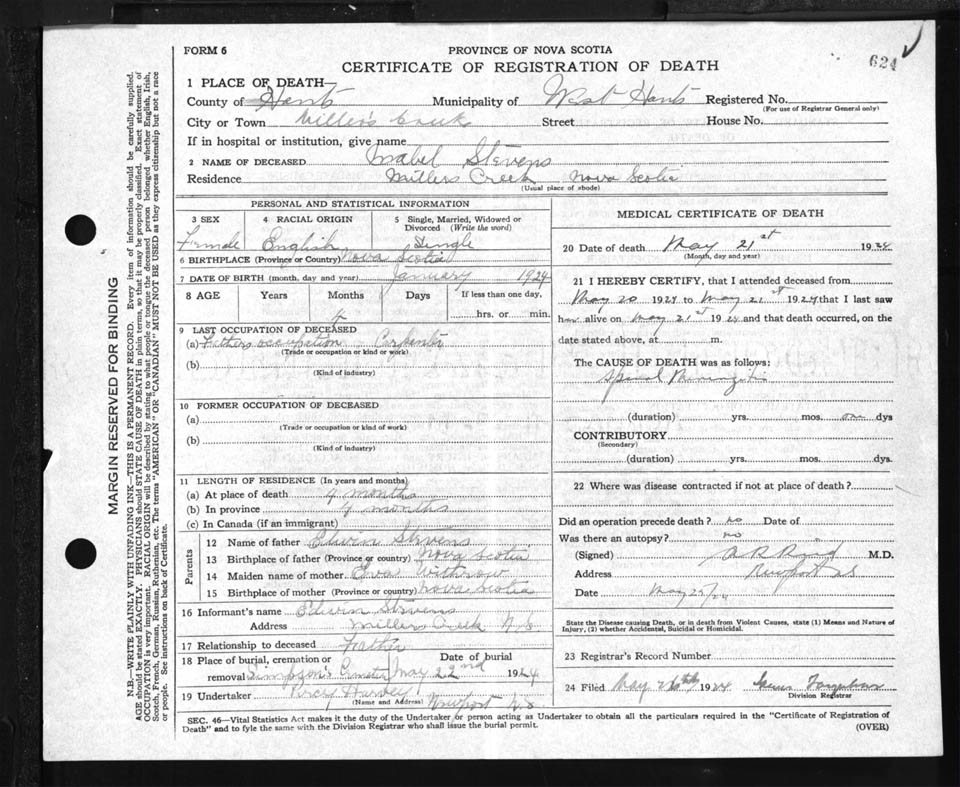 FORM 6
PROVINCE OF NOVA SCOTIA
624
CERTIFICATE OF REGISTRATION OF DEATH
1 PLACE OF DEATH—
County of Hants Municipality of West Hants Registered No.
(For use of Registrar General only)
City or Town Miller's Creek Street House No.
If in hospital or institution, give name
2 NAME OF DECEASED Mabel Stevens
Residence Millers Creek Nova Scotia
(Usual place of abode)
PERSONAL AND STATISTICAL INFORMATION
3 SEX 4 RACIAL ORIGIN 5 Single, Married, Widowed or Divorced (Write the word)
Female English Single
6 BIRTHPLACE (Province or Country) Nova Scotia
7 DATE OF BIRTH (month, day and year) January 1924
8 AGE Years Months Days If less than one day,
4 hrs. or min.
9 LAST OCCUPATION OF DECEASED
(a) Fathers occupation Carpenter
(Trade or occupation or kind of work)
(b)
(Kind of industry)
10 FORMER OCCUPATION OF DECEASED
(a)
(Trade or occupation or kind of work)
(b)
(Kind of industry)
11 LENGTH OF RESIDENCE (In years and months)
(a) At place of death 4 months
(b) In province 4 months
(c) In Canada (if an immigrant)
Parents
12 Name of father Edwin Stevens
13 Birthplace of father (Province or country) Nova Scotia
14 Maiden name of mother Eva Withrow
15 Birthplace of mother (Province or country) Nova Scotia
16 Informant's name Edwin Stevens
Address Millers Creek N.S
17 Relationship to deceased Father
18 Place of burial, cremation or removal Simpson's Date of burial May 22nd 1924
19 Undertaker Percy Harvey Newport N.S.
(Name and Address)
MEDICAL CERTIFICATE OF DEATH
20 Date of death May 21st 1924
(Month, day and year)
21 I HEREBY CERTIFY, that I attended deceased from
May 20 1924 to May 21st 1924 that I last saw
her alive on May 21st 1924 and that death occurred, on the
date stated above, at m.
The CAUSE OF DEATH was as follows:
Spinal Meningitis
(duration) yrs. mos. one dys
CONTRIBUTORY
(Secondary)
(duration) yrs. mos. dys.
22 Where was disease contracted if not at place of death?
Did an operation precede death? no Date of
Was there an autopsy? no
(Signed) M.D.
Address Newport NS
Date May 24
State the Disease causing Death, or in death from Violent Causes, state (1) Means and Nature of
Injury, (2) whether Accidental, Suicidal or Homicidal.
23 Registrar's Record Number
24 Filed May 1924
Division Registrar
SEC. 46—Vital Statistics Act makes it the duty of the Undertaker or person acting as Undertaker to obtain all the particulars required in the "Certificate of Registration of
Death" and to fyle the same with the Division Registrar who shall issue the burial permit.
(OVER)
MARGIN RESERVED FOR BINDING
N.B.—WRITE PLAINLY WITH UNFADING INK—THIS IS A PERMANENT RECORD. Every item of information should be carefully supplied.
AGE should be stated EXACTLY. PHYSICIANS should STATE CAUSE OF DEATH in plain terms, so that it may be properly classified. Exact statement of
OCCUPATION is very important. RACIAL ORIGIN will be described by stating to what people or tongue the deceased person belonged whether English, Irish,
Scotch, French, German, Russian, Ruthenian, etc. The terms "AMERICAN" or "CANADIAN" MUST NOT BE USED as they express citizenship but not a race
or people. See instructions on back of Certificate.